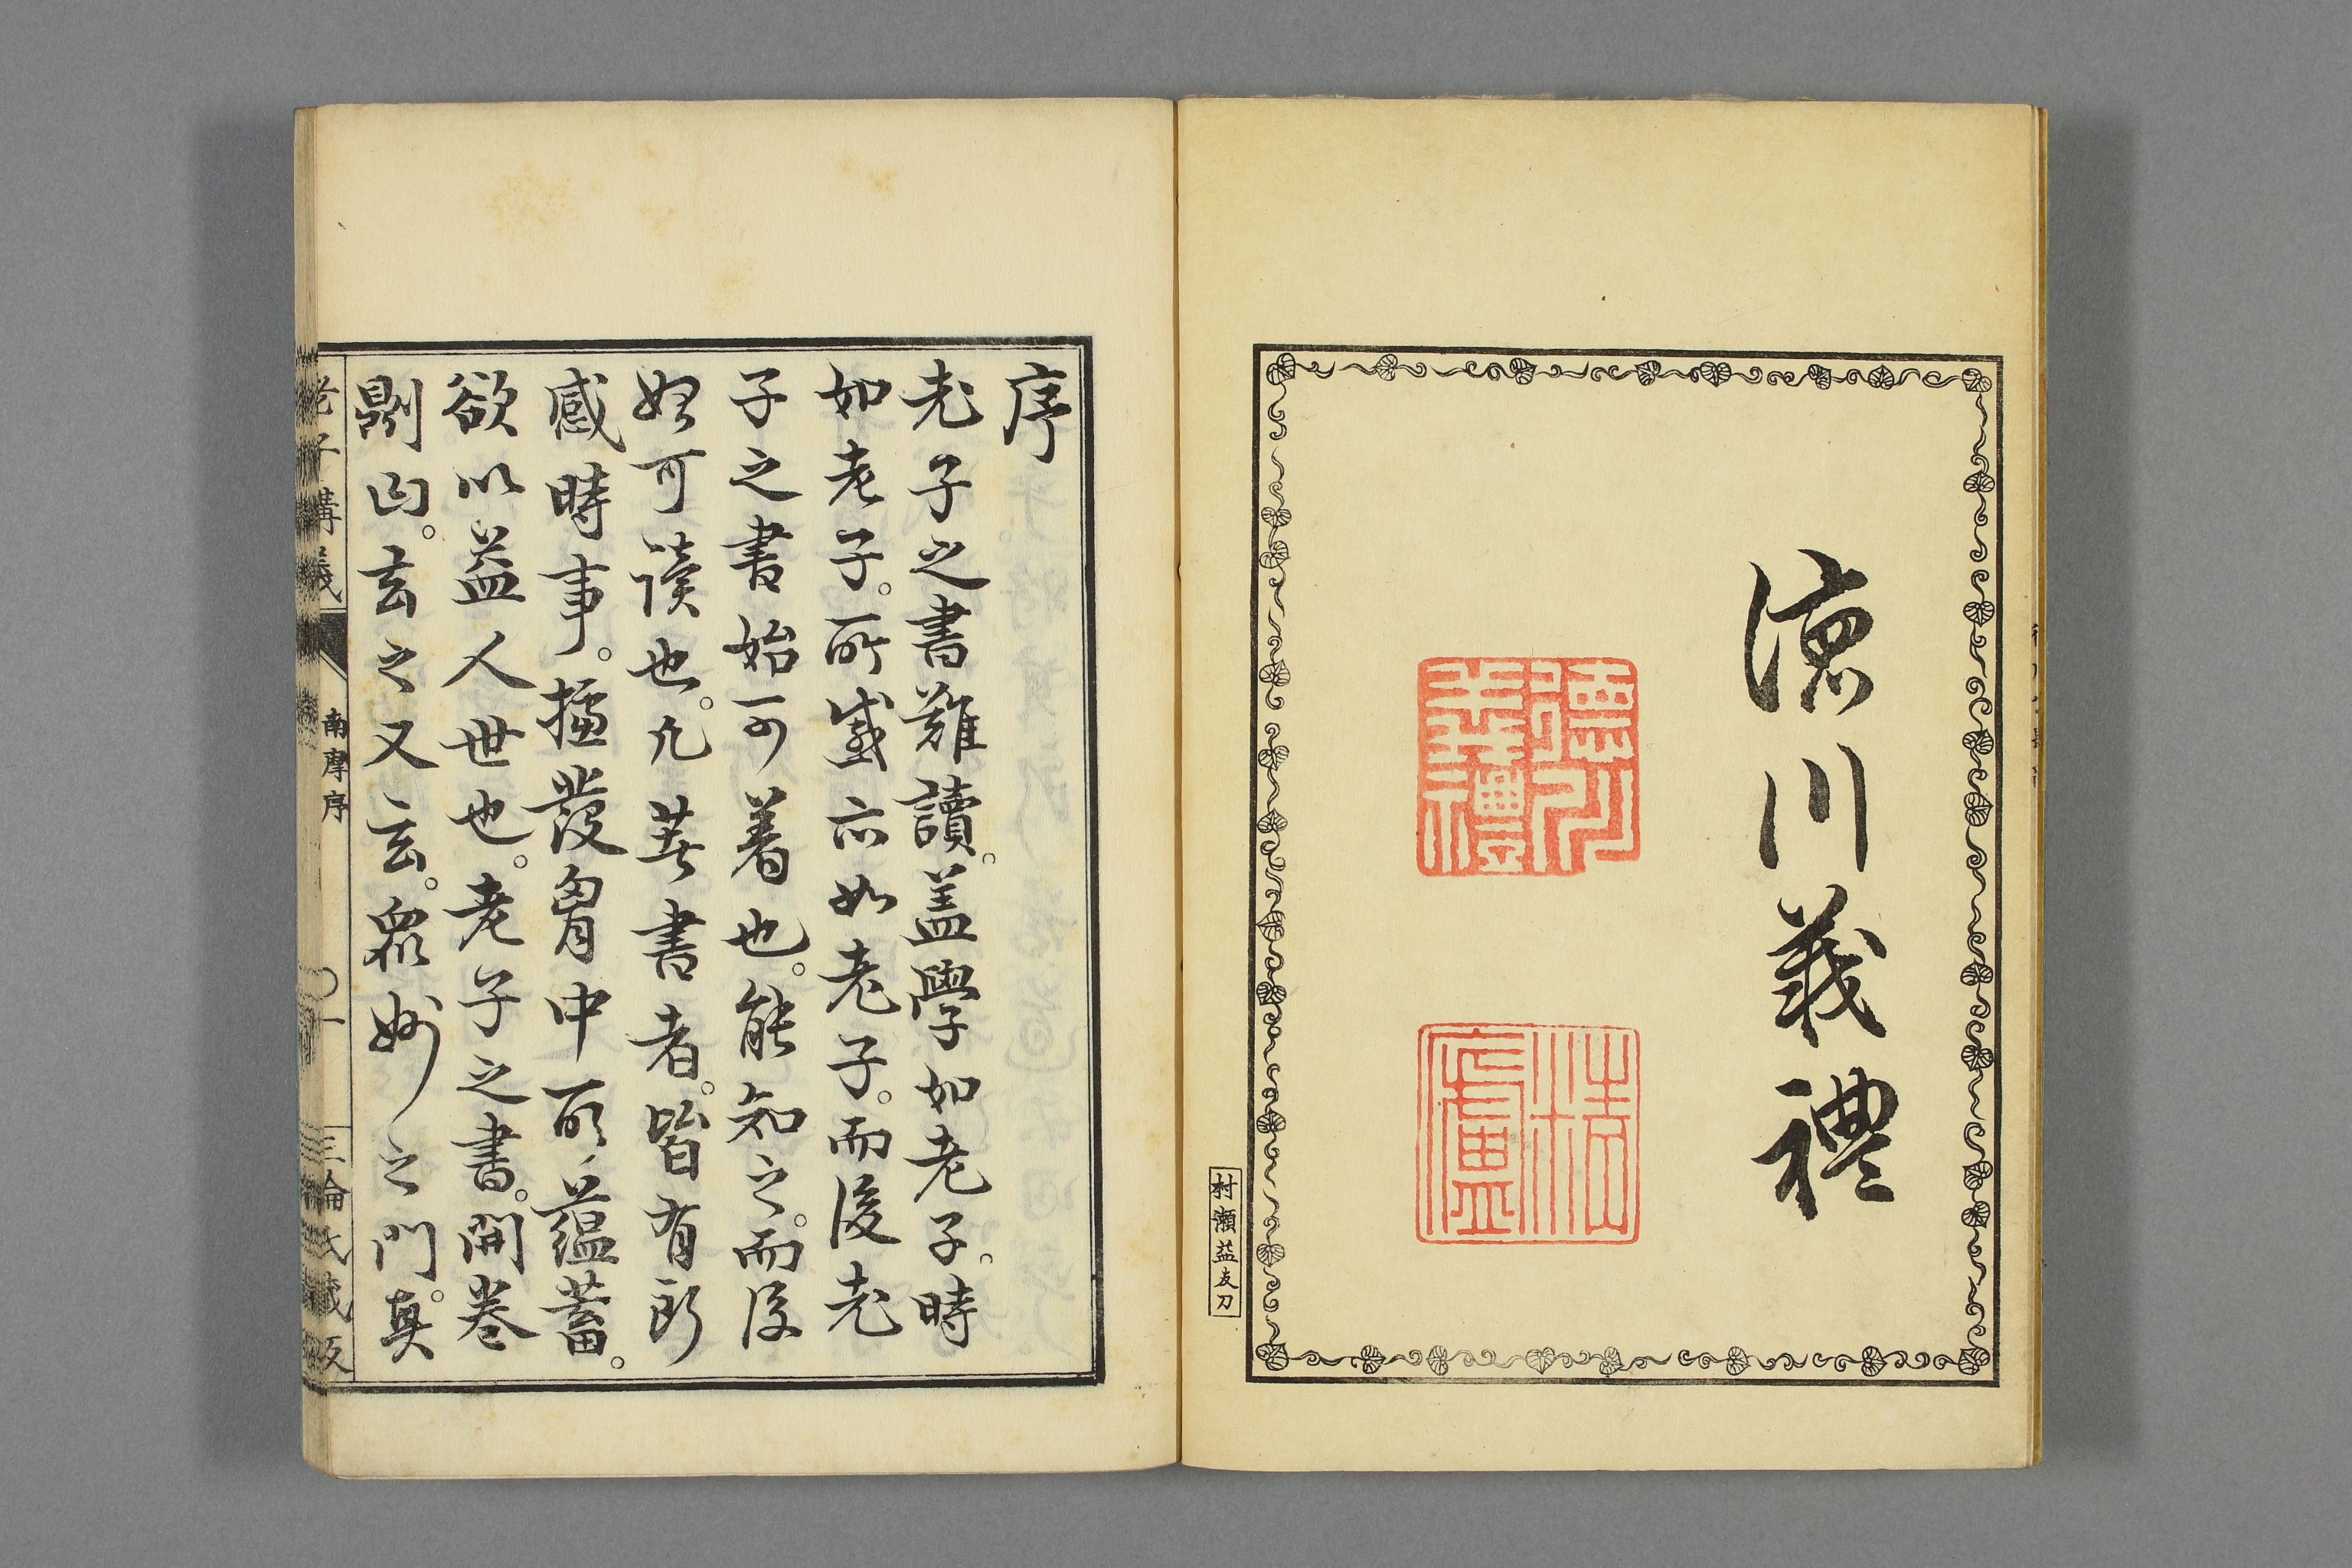 德川義禮
德川義禮
桂廬
村瀬益友刀
序
老子之書難讀。蓋學如老子。時
如老子。所感亦如老子。而後老
子之書始可着也。能知之。而後
始可讀也。凡著書者。皆有所
感時事。攄發胷中所蘊蓄。
欲以益人世也。老子之書。開卷
則曰。玄之又玄。衆妙之門。真
老子講義
南摩序
〇一
三輪氏藏版